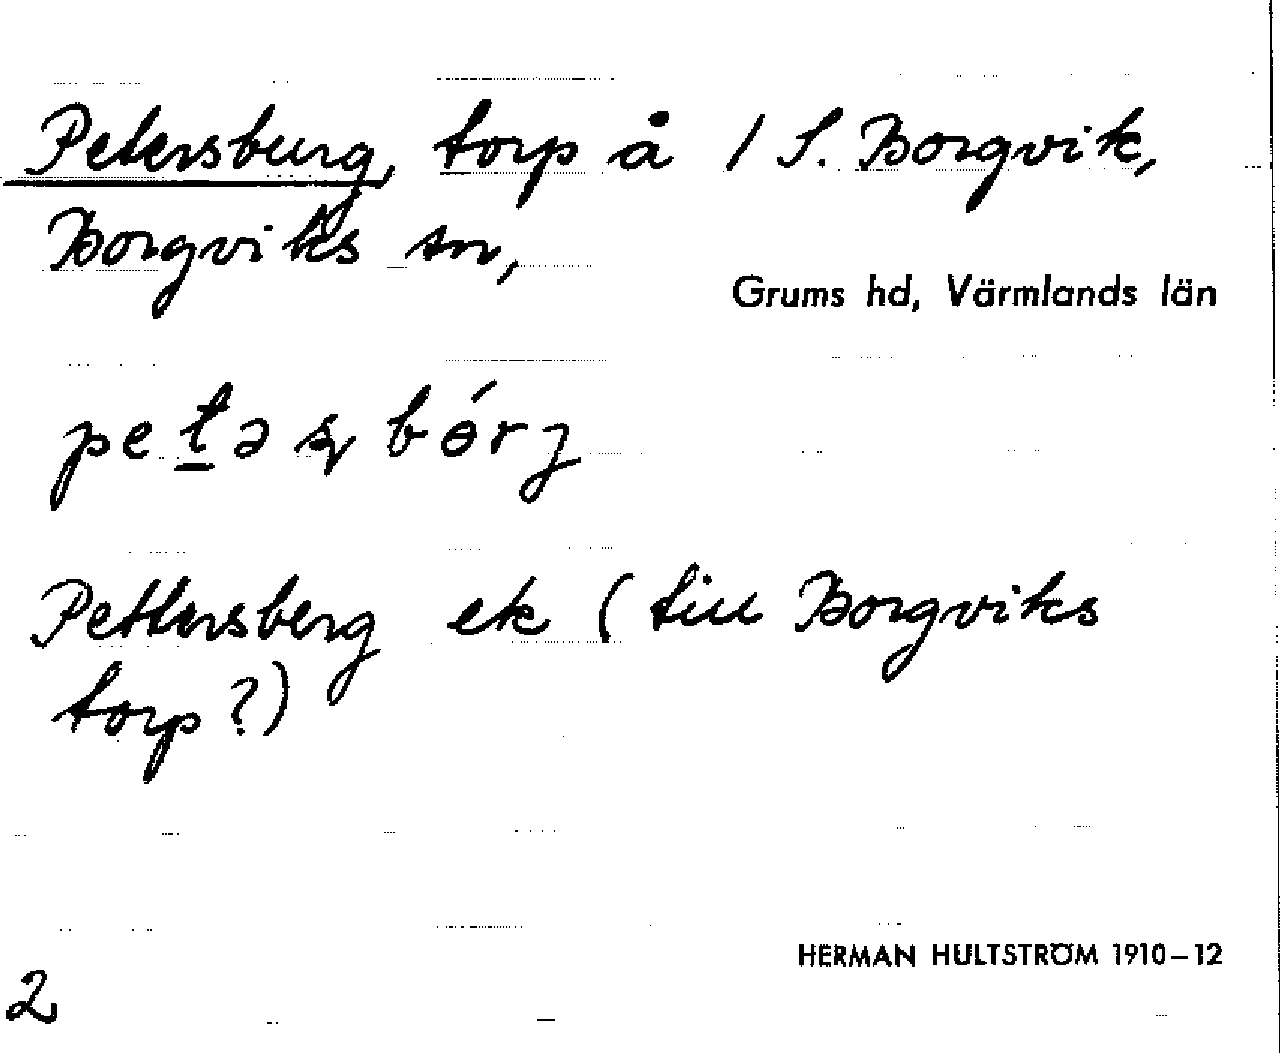 Petersburg, torp å / S. Borgvik,
Borgviks sn,
Grums hd, Värmlands län
pet̲əʂbɵ́rʒ
Pettersberg ek (till Borgviks
torp?)
HERMAN HULTSTRÖM 1910–12
2